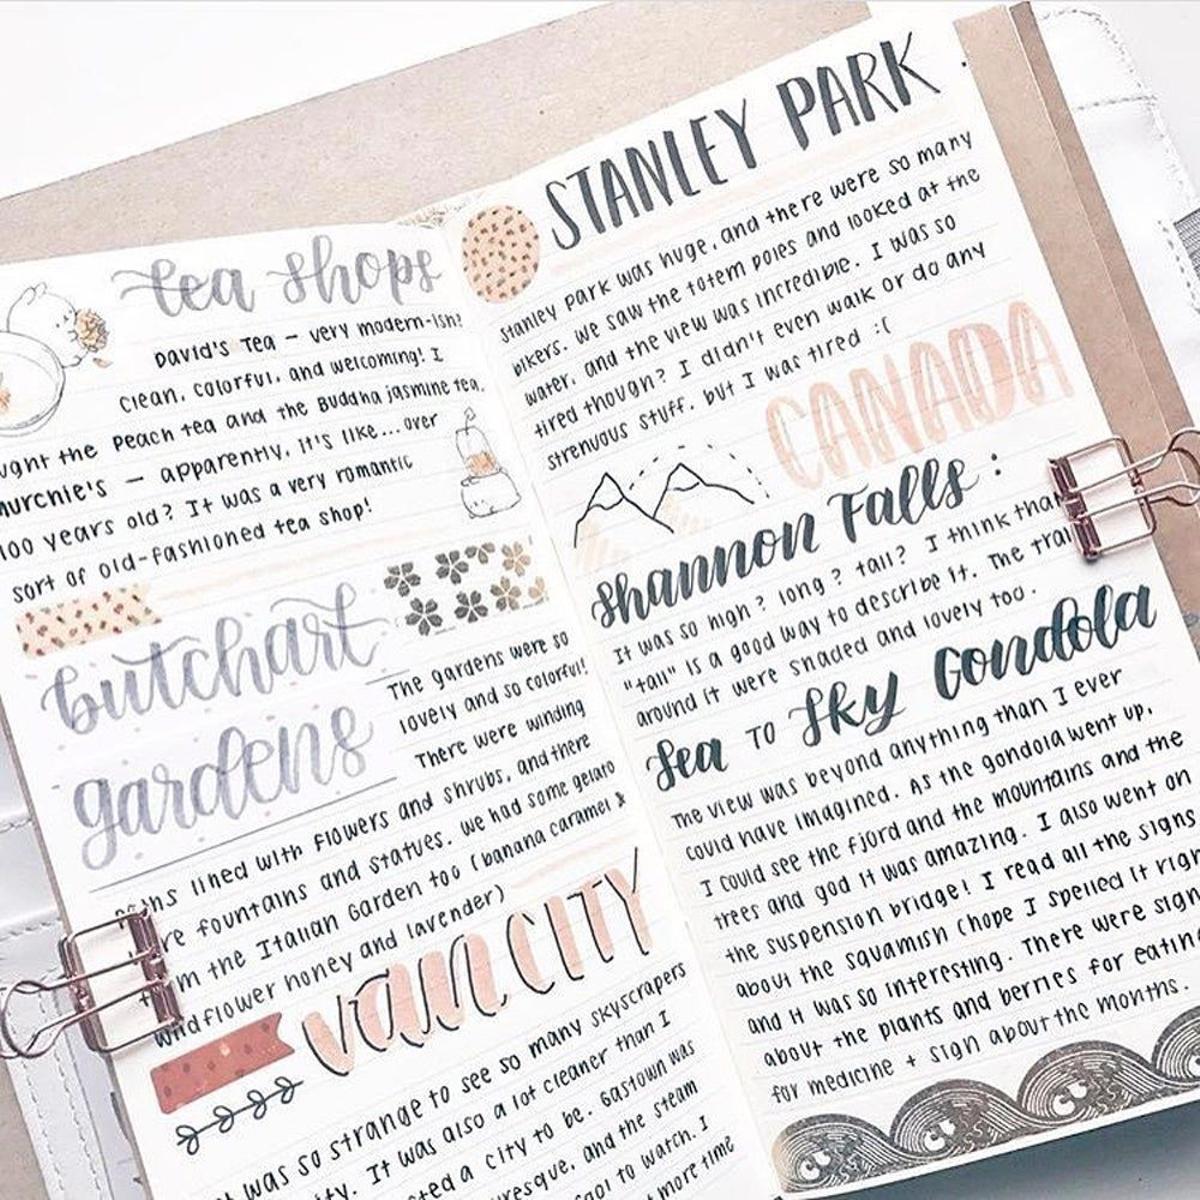 tea shops
David's Tea – very modern-ish?
clean, colorful, and welcoming! I
the peach tea and the Buddha jasmine tea.
– apparently, it's like... over
100 years old? It was a very romantic
sort of old-fashioned tea shop!
butchart
gardens
The gardens were so
lovely and so colorful!
There were winding
lined with flowers and shrubs, and there
fountains and statues. we had some gelato
the Italian Garden too (banana caramel &
wildflower honey and lavender)
van CITY
was so strange to see so many skyscrapers
It was also a lot cleaner than I
a city to be. Gastown was
and the steam
to watch. I
more time
STANLEY PARK
Stanley Park was huge, and there were so many
bikers. we saw the totem poles and looked at the
water, and the view was incredible. I was so
tired though? I didn't even walk or do any
strenuous stuff, but I was tired :(
CANADA
Shannon Falls :
It was so high? long? tall? I think that
"tall" is a good way to describe it. The
around it were shaded and lovely too.
Sea TO Sky Gondola
The view was beyond anything than I ever
could have imagined. As the gondola went up,
I could see the fjord and the mountains and the
trees and god it was amazing. I also went on
the suspension bridge! I read all the signs
about the Squamish (hope I spelled it
and it was so interesting. There were
about the plants and berries for
for medicine + sign about the months.